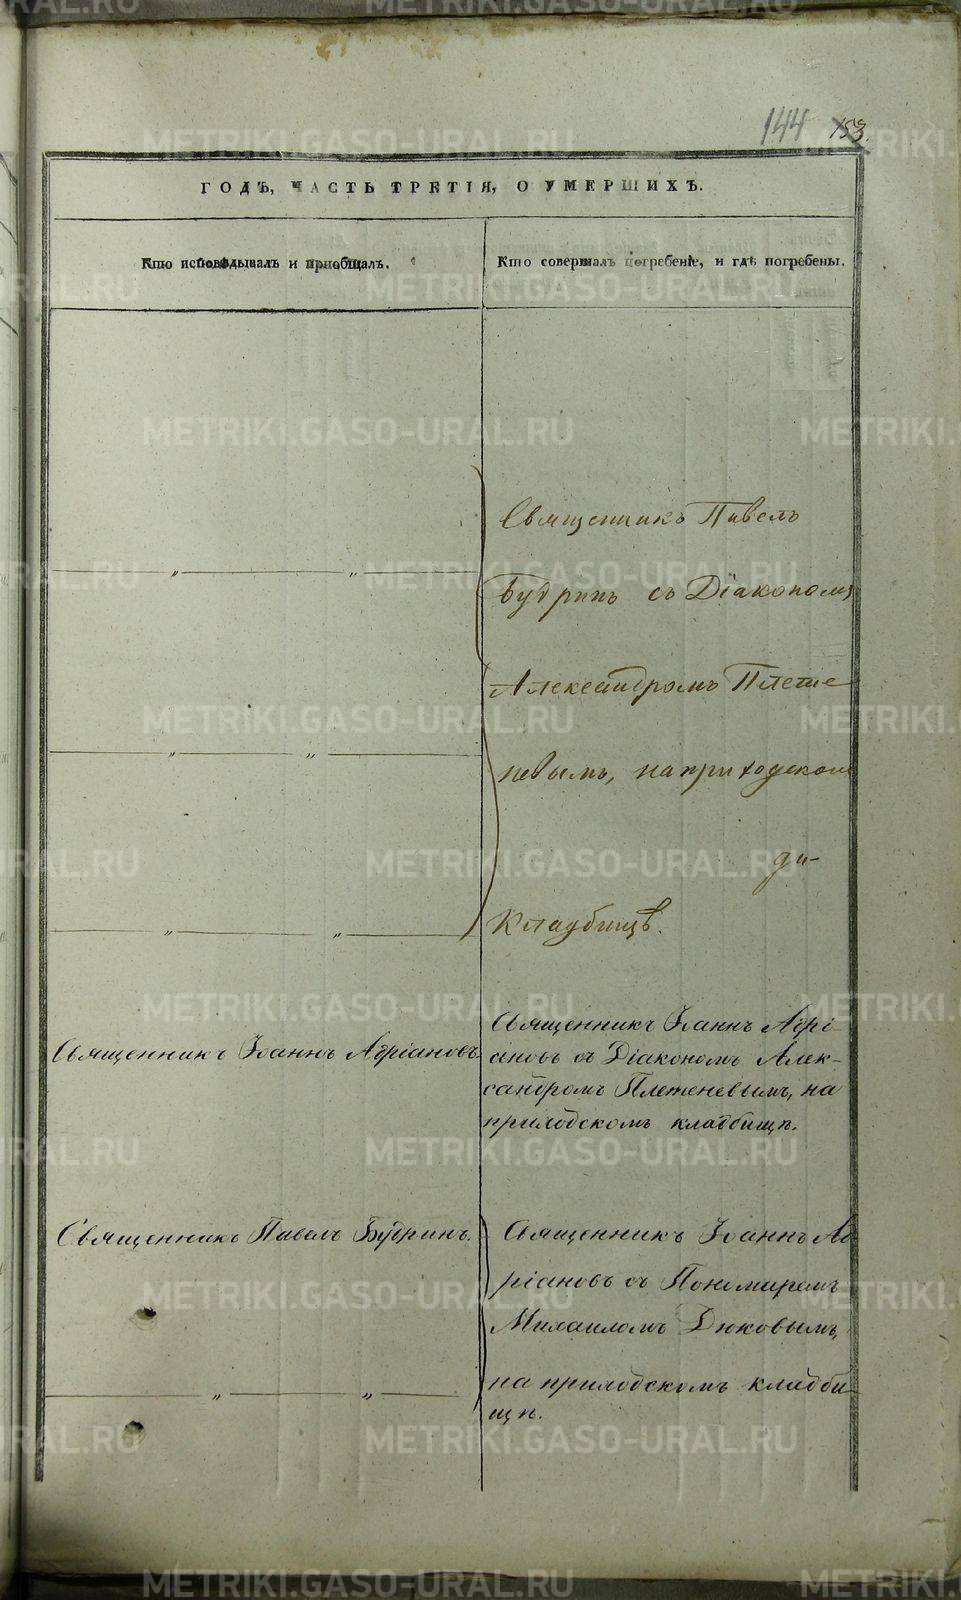 144 153.
ГОДЪ, ЧАСТЬ ТРЕТІЯ, О УМЕРШИХЪ.
Кто исповѣдывалъ и пріобщалъ.
Кто совершалъ погребеніе, и гдѣ погребены.
Священникъ Павелъ
Будринъ съ Діакономъ
Александромъ Плете
невымъ, на приходском
ди-
Кладбищѣ.
Священникъ Іоаннъ Адріановъ
Священникъ Іоаннъ Адрі-
ановъ съ Діакономъ Алек-
сандромъ Плетеневымъ, на
приходскомъ кладбищѣ.
Священникъ Павелъ Будринъ.
Священникъ Іоаннъ Ад
ріановъ съ Пономаремъ
Михаиломъ Дюковымъ,
на приходскомъ кладби
щѣ.
METRIKI.GASO-URAL.RU